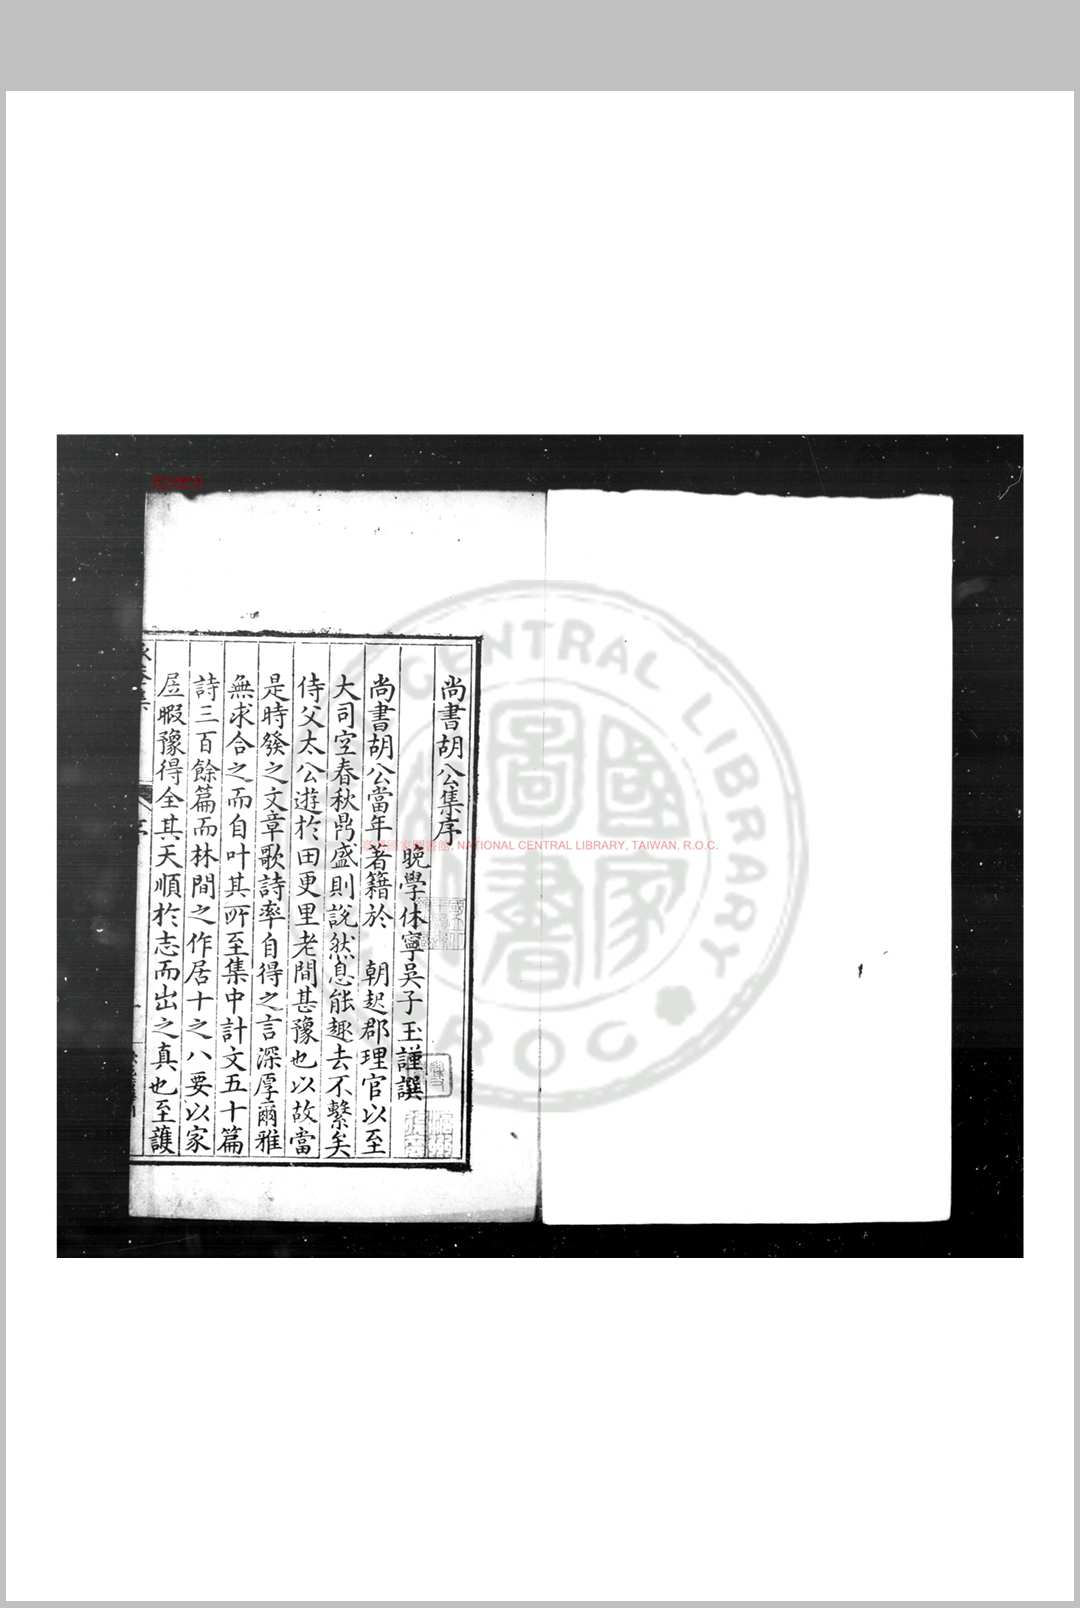 尚書胡公集序
晚學休寧吳子玉謹譔
尚書胡公當年者籍於 朝起郡理官以至
大司空春秋鼎盛則說然息能趣去不繫矣
侍父太公遊於田更里老間甚豫也以故當
是時發之文章歌詩率自得之言深厚爾雅
無求合之而自叶其所至集中計文五十篇
詩三百餘篇而林間之作居十之八要以家
居暇豫得全其天順於志而出之真也至護
序
NATIONAL CENTRAL LIBRARY, TAIWAN, R.O.C.
CENTRAL LIBRARY
R.O.C
國家圖書